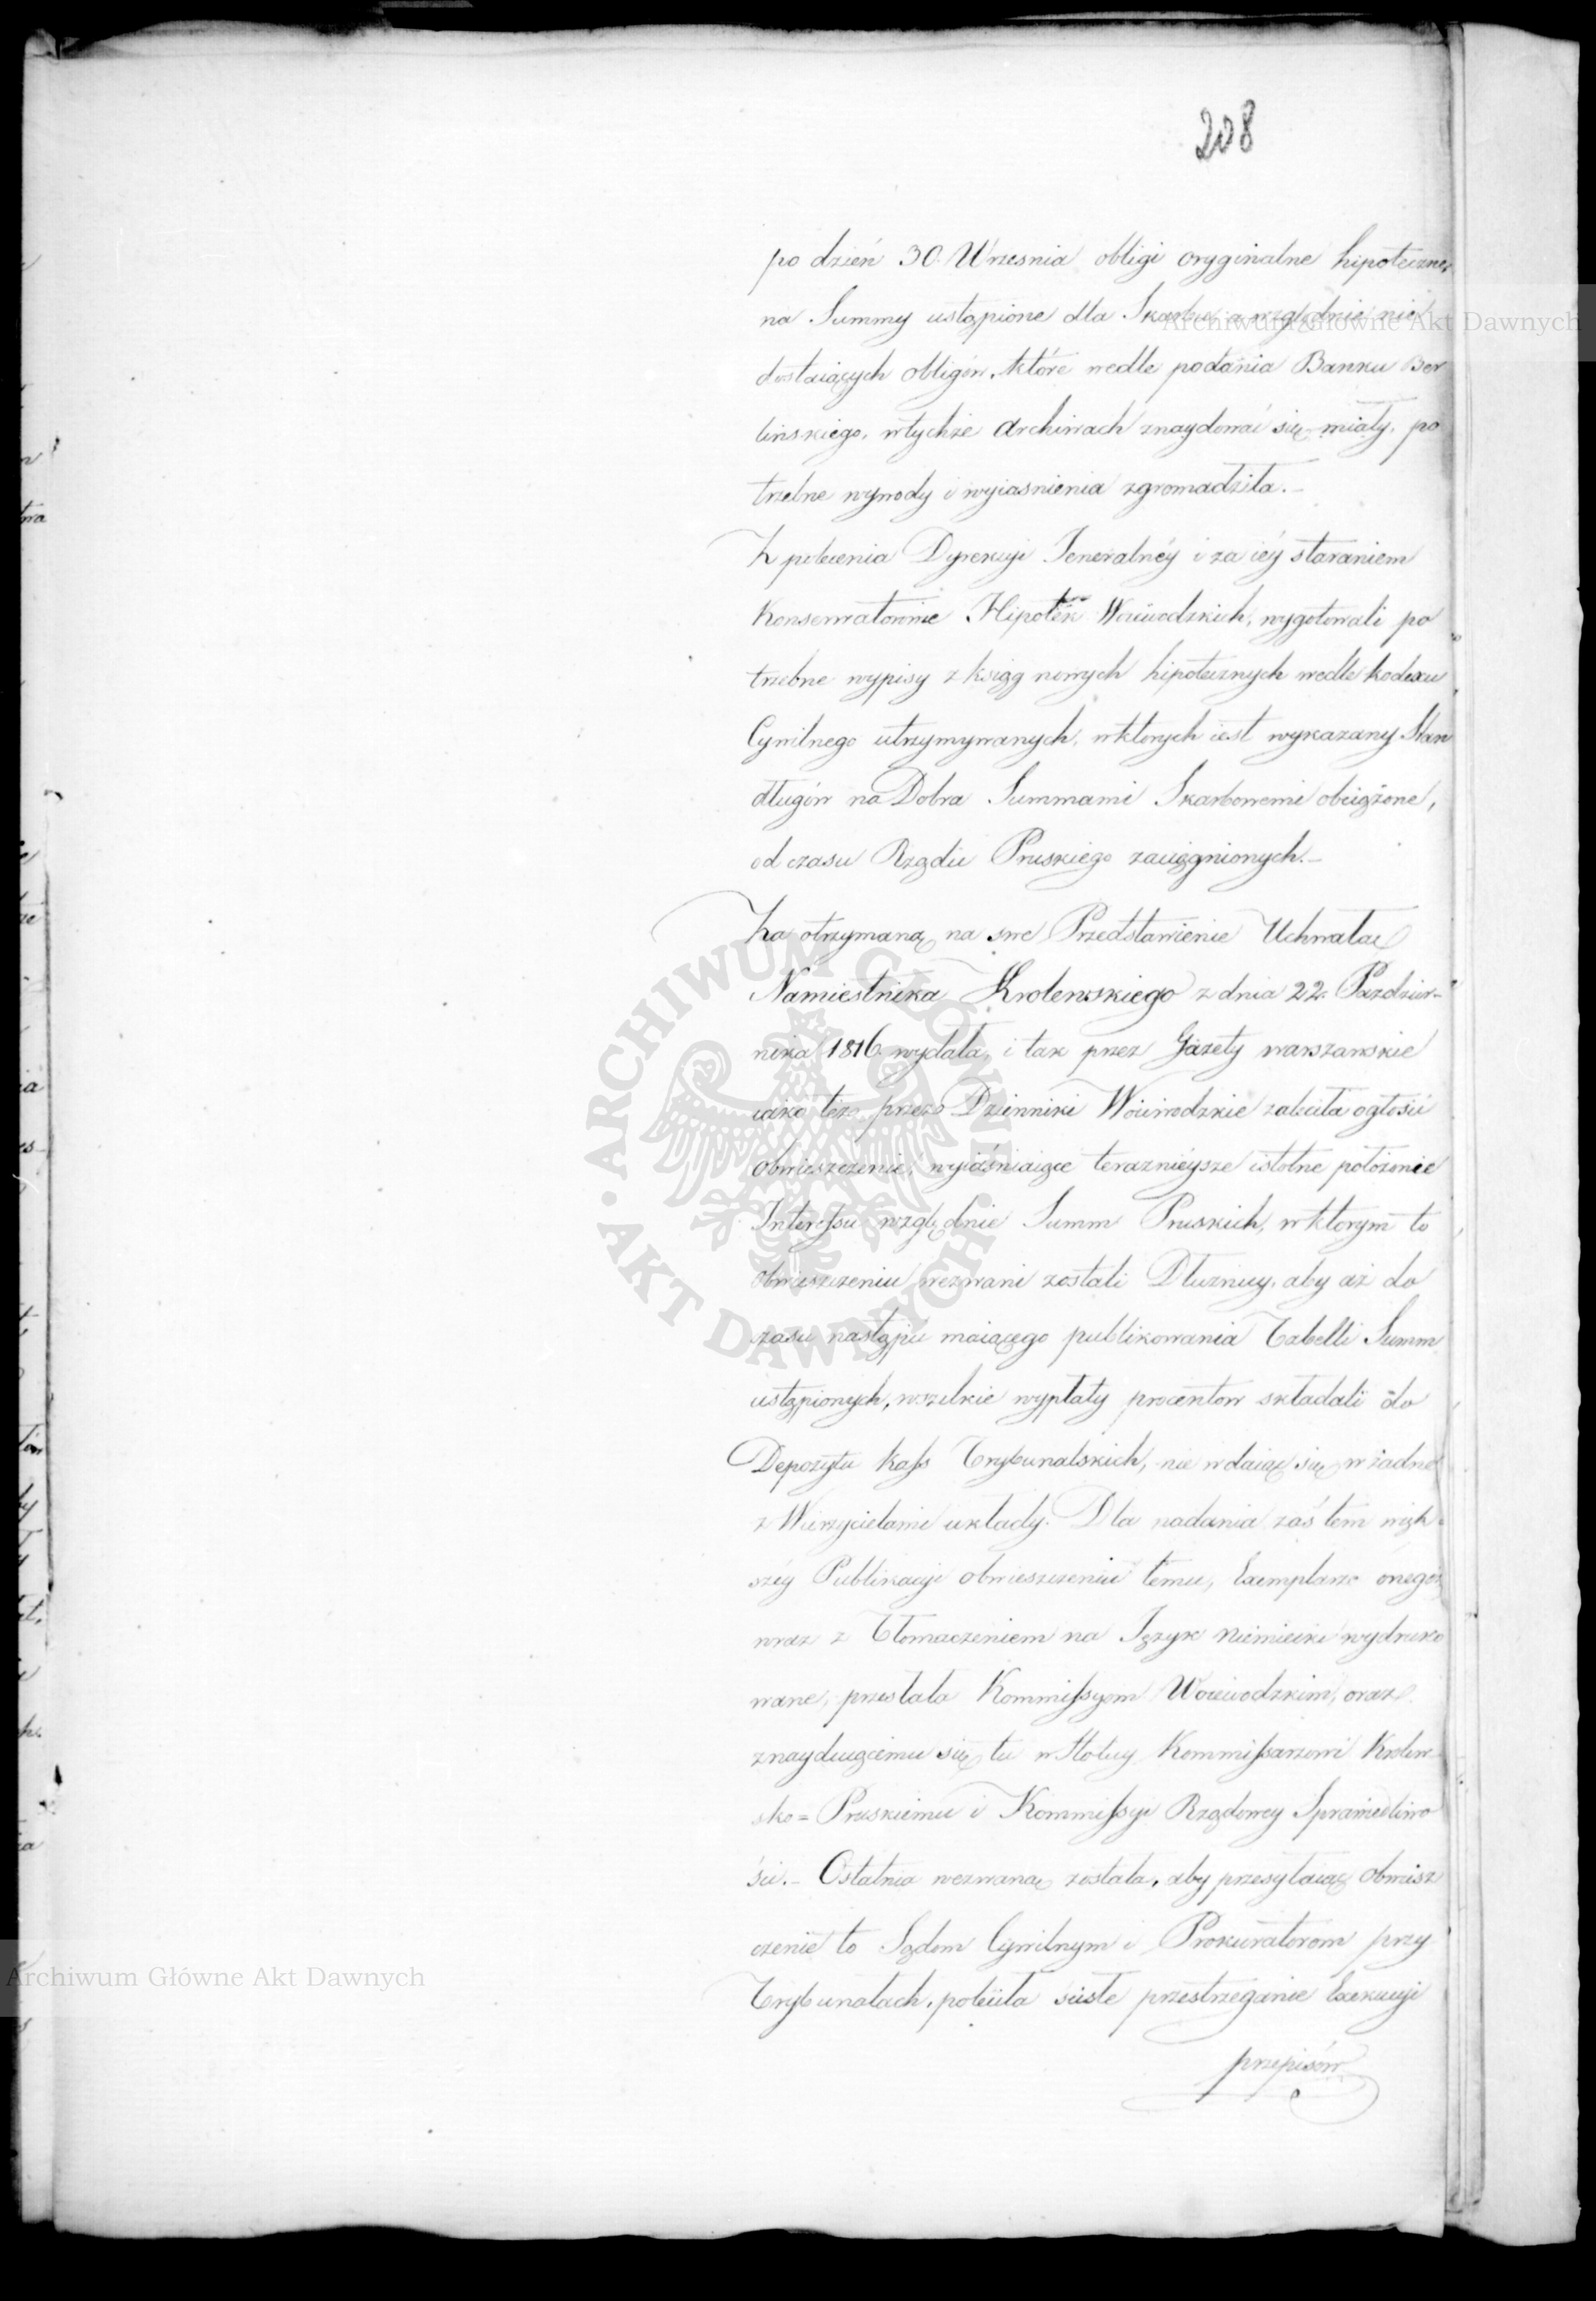 208
po dzień 30. Wrzesnia obligi oryginalne hipoteczne,
na Summy ustąpione dla Skarbu a względnie nie
dostaiących obligów, które wedle podania Banku Ber
lińskiego, wtychże Archiwach znaydować się miały, po
trzebne wywody i wyiasnienia zgromadziła.–
Z polecenia Dyrekcyi Jeneralnéy i za iéy staraniem
Konserwatorowie Hipotek Woiewodzkich, wygotowali po
trzebne wypisy z ksiąg nowych hipotecznych wedle Kodexu
Cywilnego utrzymywanych, wktorych iest wykazany Stan
długów na Dobra Summami Skarbowemi obciążone,
od czasu Rządu Pruskiego zaciągnionych.–
Za otrzymaną na swe Przedstawienie Uchwałą
Namiestnika Krolewskiego z dnia 22. Pazdzier-
nika 1816. wydała, i tak przez Gazety warszawskie
iako téz przez Dzienniki Woiewodzkie zaleciła ogłosić
obwieszczenie, wyiaśniaiące teraznieysze istotne położenie
Interessu względnie Summ Pruskich, wktorym to
obwieszczeniu wezwani zostali Dłuznicy, aby aż do
czasu nastąpić maiącego publikowania Tabelli Summ
ustąpionych, wszelkie wypłaty procentow składali do
Depozytu Kass Trybunalskich, nie wdaiąc się w żadne
z Wierzycielami układy. Dla nadania zaś tem więk-
széy Publikacyi obwieszczeniu temu, Exemplarze onegoż
wraz z Tłomaczeniem na Język Niemiecki wydruko
wane, przesłała Kommissyom Woiewodzkim, oraz
znayduiącemu się tu w Stolicy Kommissarzowi Krolew-
sko=Pruskiemu i Kommissyi Rządowey Sprawiedliwo
ści.– Ostatnia wezwaną została, aby przesyłaiąc obwiesz
czenie to Sądom Cywilnym i Prokuratorom przy
Trybunałach, poleciła ścisłe przestrzeganie Exekucyi
przepisów
Archiwum Główne Akt Dawnych
Archiwum Główne Akt Dawnych
ARCHIWUM GŁÓWNE · AKT DAWNYCH ·